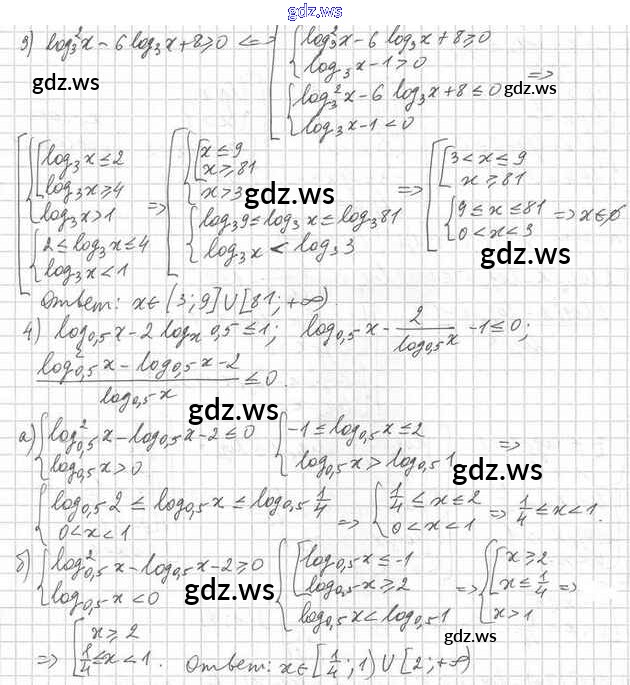 gdz.ws
3) log₃²x - 6 log₃x + 8 ≥ 0 <=> [ { log₃²x - 6 log₃x + 8 ≥ 0
log₃x - 1 > 0
{ log₃²x - 6 log₃x + 8 ≤ 0
log₃x - 1 < 0 =>
gdz.ws gdz.ws
[ { [ log₃x ≤ 2
log₃x ≥ 4
log₃x > 1
{ 2 ≤ log₃x ≤ 4
log₃x < 1
=> [ { [ x ≤ 9
x ≥ 81
x > 3
{ log₃9 ≤ log₃x ≤ log₃81
log₃x < log₃3
=> [ [ 3 < x ≤ 9
x ≥ 81
{ 9 ≤ x ≤ 81
0 < x < 3 => x ∈ ∅
gdz.ws
gdz.ws
Ответ: x ∈ (3; 9] ∪ [81; +∞).
gdz.ws
4) log₀,₅x - 2 logₓ0,5 ≤ 1; log₀,₅x - 2/log₀,₅x - 1 ≤ 0;
(log²₀,₅x - log₀,₅x - 2)/log₀,₅x ≤ 0.
gdz.ws
а) { log²₀,₅x - log₀,₅x - 2 ≤ 0
log₀,₅x > 0
{ -1 ≤ log₀,₅x ≤ 2
log₀,₅x > log₀,₅1 =>
gdz.ws
{ log₀,₅2 ≤ log₀,₅x ≤ log₀,₅1/4
0 < x < 1
=> { 1/4 ≤ x ≤ 2
0 < x < 1 => 1/4 ≤ x < 1.
б) { log²₀,₅x - log₀,₅x - 2 ≥ 0
log₀,₅x < 0
{ [ log₀,₅x ≤ -1
log₀,₅x ≥ 2
log₀,₅x < log₀,₅1
=> { [ x ≥ 2
x ≤ 1/4
x > 1 =>
gdz.ws
gdz.ws
=> [ x ≥ 2
1/4 ≤ x < 1. Ответ: x ∈ [1/4; 1) ∪ [2; +∞)
gdz.ws